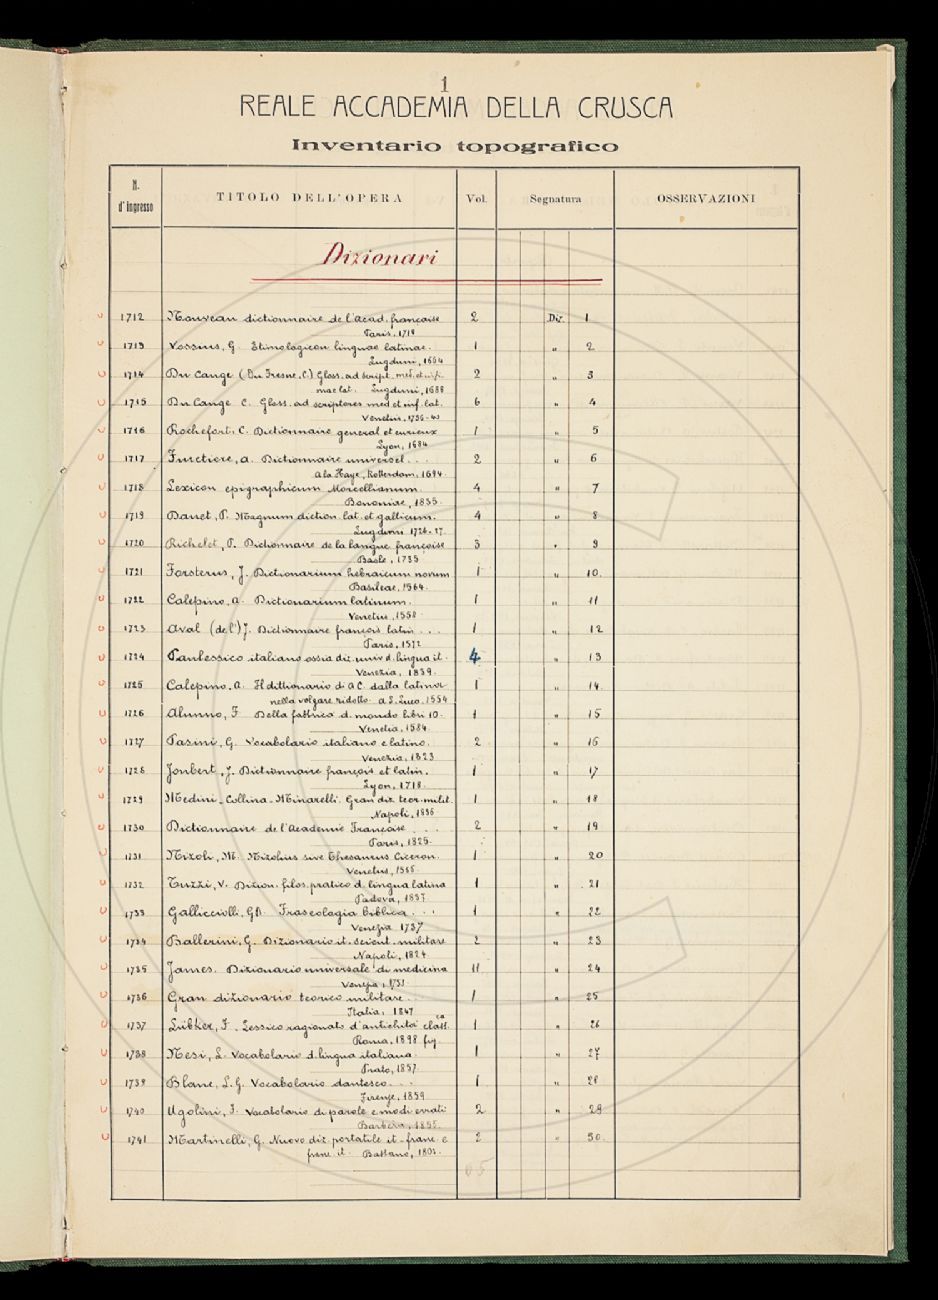 1
REALE ACCADEMIA DELLA CRUSCA
Inventario topografico
N. d'ingresso TITOLO DELL'OPERA Vol. Segnatura OSSERVAZIONI
Dizionari
1712 Nouveau dictionnaire de l'acad. françoise 2 Diz. 1
Paris, 1718
1713 Vossius, G. Etimologicon linguae latinae. 1 " 2
Lugduni, 1664
1714 Du Cange (Du Fresne, C.) Gloss. ad script. med. et inf. 2 " 3
mae lat. Lugduni, 1688
1715 Du Cange C. Gloss. ad scriptores med et inf. lat. 6 " 4
Venetiis, 1736-40
1716 Rochefort, C. Dictionnaire general et curieux 1 " 5
Lyon, 1684
1717 Furetiere, A. Dictionnaire universel . . . 2 " 6
A la Haye, Rotterdam, 1694
1718 Lexicon epigraphicum Morcellianum. 4 " 7
Bononiae, 1835.
1719 Danet, P. Magnum diction. lat. et gallicum. 4 " 8
Lugduni 1726-27.
1720 Richelet, P. Dictionnaire de la langue françoise 3 " 9
Basle, 1735
1721 Forsterus, J. Dictionarium hebraicum novum 1 " 10.
Basileae, 1564.
1722 Calepino, A. Dictionarium latinum. 1 " 11
Venetiis, 1550
1723 Aval (de l') J. Dictionnaire françois latin . . . 1 " 12
Paris, 1572
1724 Panlessico italiano ossia diz. univ d. lingua it. 4 " 13
Venezia, 1839.
1725 Calepino, A. Il dittionario di A C. dalla latina 1 " 14.
nella volgare ridotto da L. Luco, 1554
1726 Alunno, F. Della fabbrica d. mondo libri 10. 1 " 15
Venetia, 1584.
1727 Pasini, G. Vocabolario italiano e latino. 2 " 16
Venezia, 1823
1728 Joubert, J. Dictionnaire françois et latin. 1 " 17
Lyon, 1718.
1729 Medini-Collina-Minarelli. Gran diz. teor. milit. 1 " 18
Napoli, 1836
1730 Dictionnaire de l'Academie Françoise . . . 2 " 19
Paris, 1825.
1731 Nizoli, M. Nizolius sive Thesaurus Ciceron. 1 " 20
Venetiis,
1732 Tuzzi, V. Dizion. filos. pratico d. lingua latina 1 " 21
Padova, 1857
1733 Gallicciolli, GB. Fraseologia biblica . . . 1 " 22
Venezia 1737
1734 Ballerini, G. Dizionario it. scient. militare 2 " 23
Napoli, 1824
1735 James. Dizionario universale di medicina 11 " 24
Venezia, 1751
1736 Gran dizionario teorico militare. 1 " 25
Italia, 1847
1737 Lübker, F. Lessico ragionato d'antichità class.ca 1 " 26
Roma, 1898 fig.
1738 Nesi, L. Vocabolario d. lingua italiana 1 " 27
Prato, 1857
1739 Blanc, L. G. Vocabolario dantesco. . . 1 " 28
Firenze, 1859
1740 Ugolini, F. Vocabolario di parole e modi errati 2 " 29
Barbèra, 1855.
1741 Martinelli, G. Nuovo diz. portatile it-franc. e 2 " 30.
franc. it. Bassano, 1801.